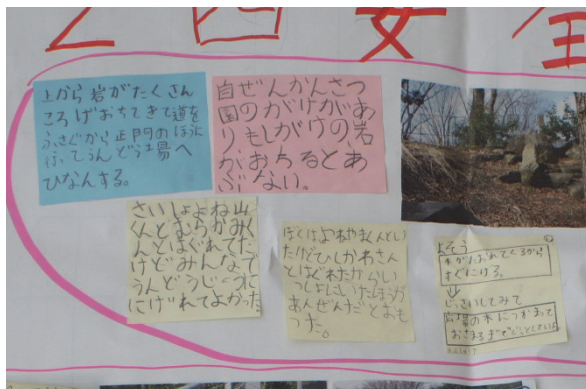 上から岩がたくさん
ころげおちてきて道を
ふさぐから正門のほうに
行ってうんどう場へ
ひなんする。
自ぜんかんさつ
園のがけがあ
りもしがけの岩
がおちるとあ
ぶない。
さいしょよね山
くんとむらかみく
んとはぐれてた
けどみんなで
うんどうじょうに
にげれてよかった。
ぼくはよねやまくんとい
たけどひしかわさん
とはぐれたからい
っしょにいったほうが
あんぜんだとおも
った。
よそう
木がたおれてくるから
すぐにげる。
↓
じっさいしてみて
の木につかまって
おさまるまでじっとしていた